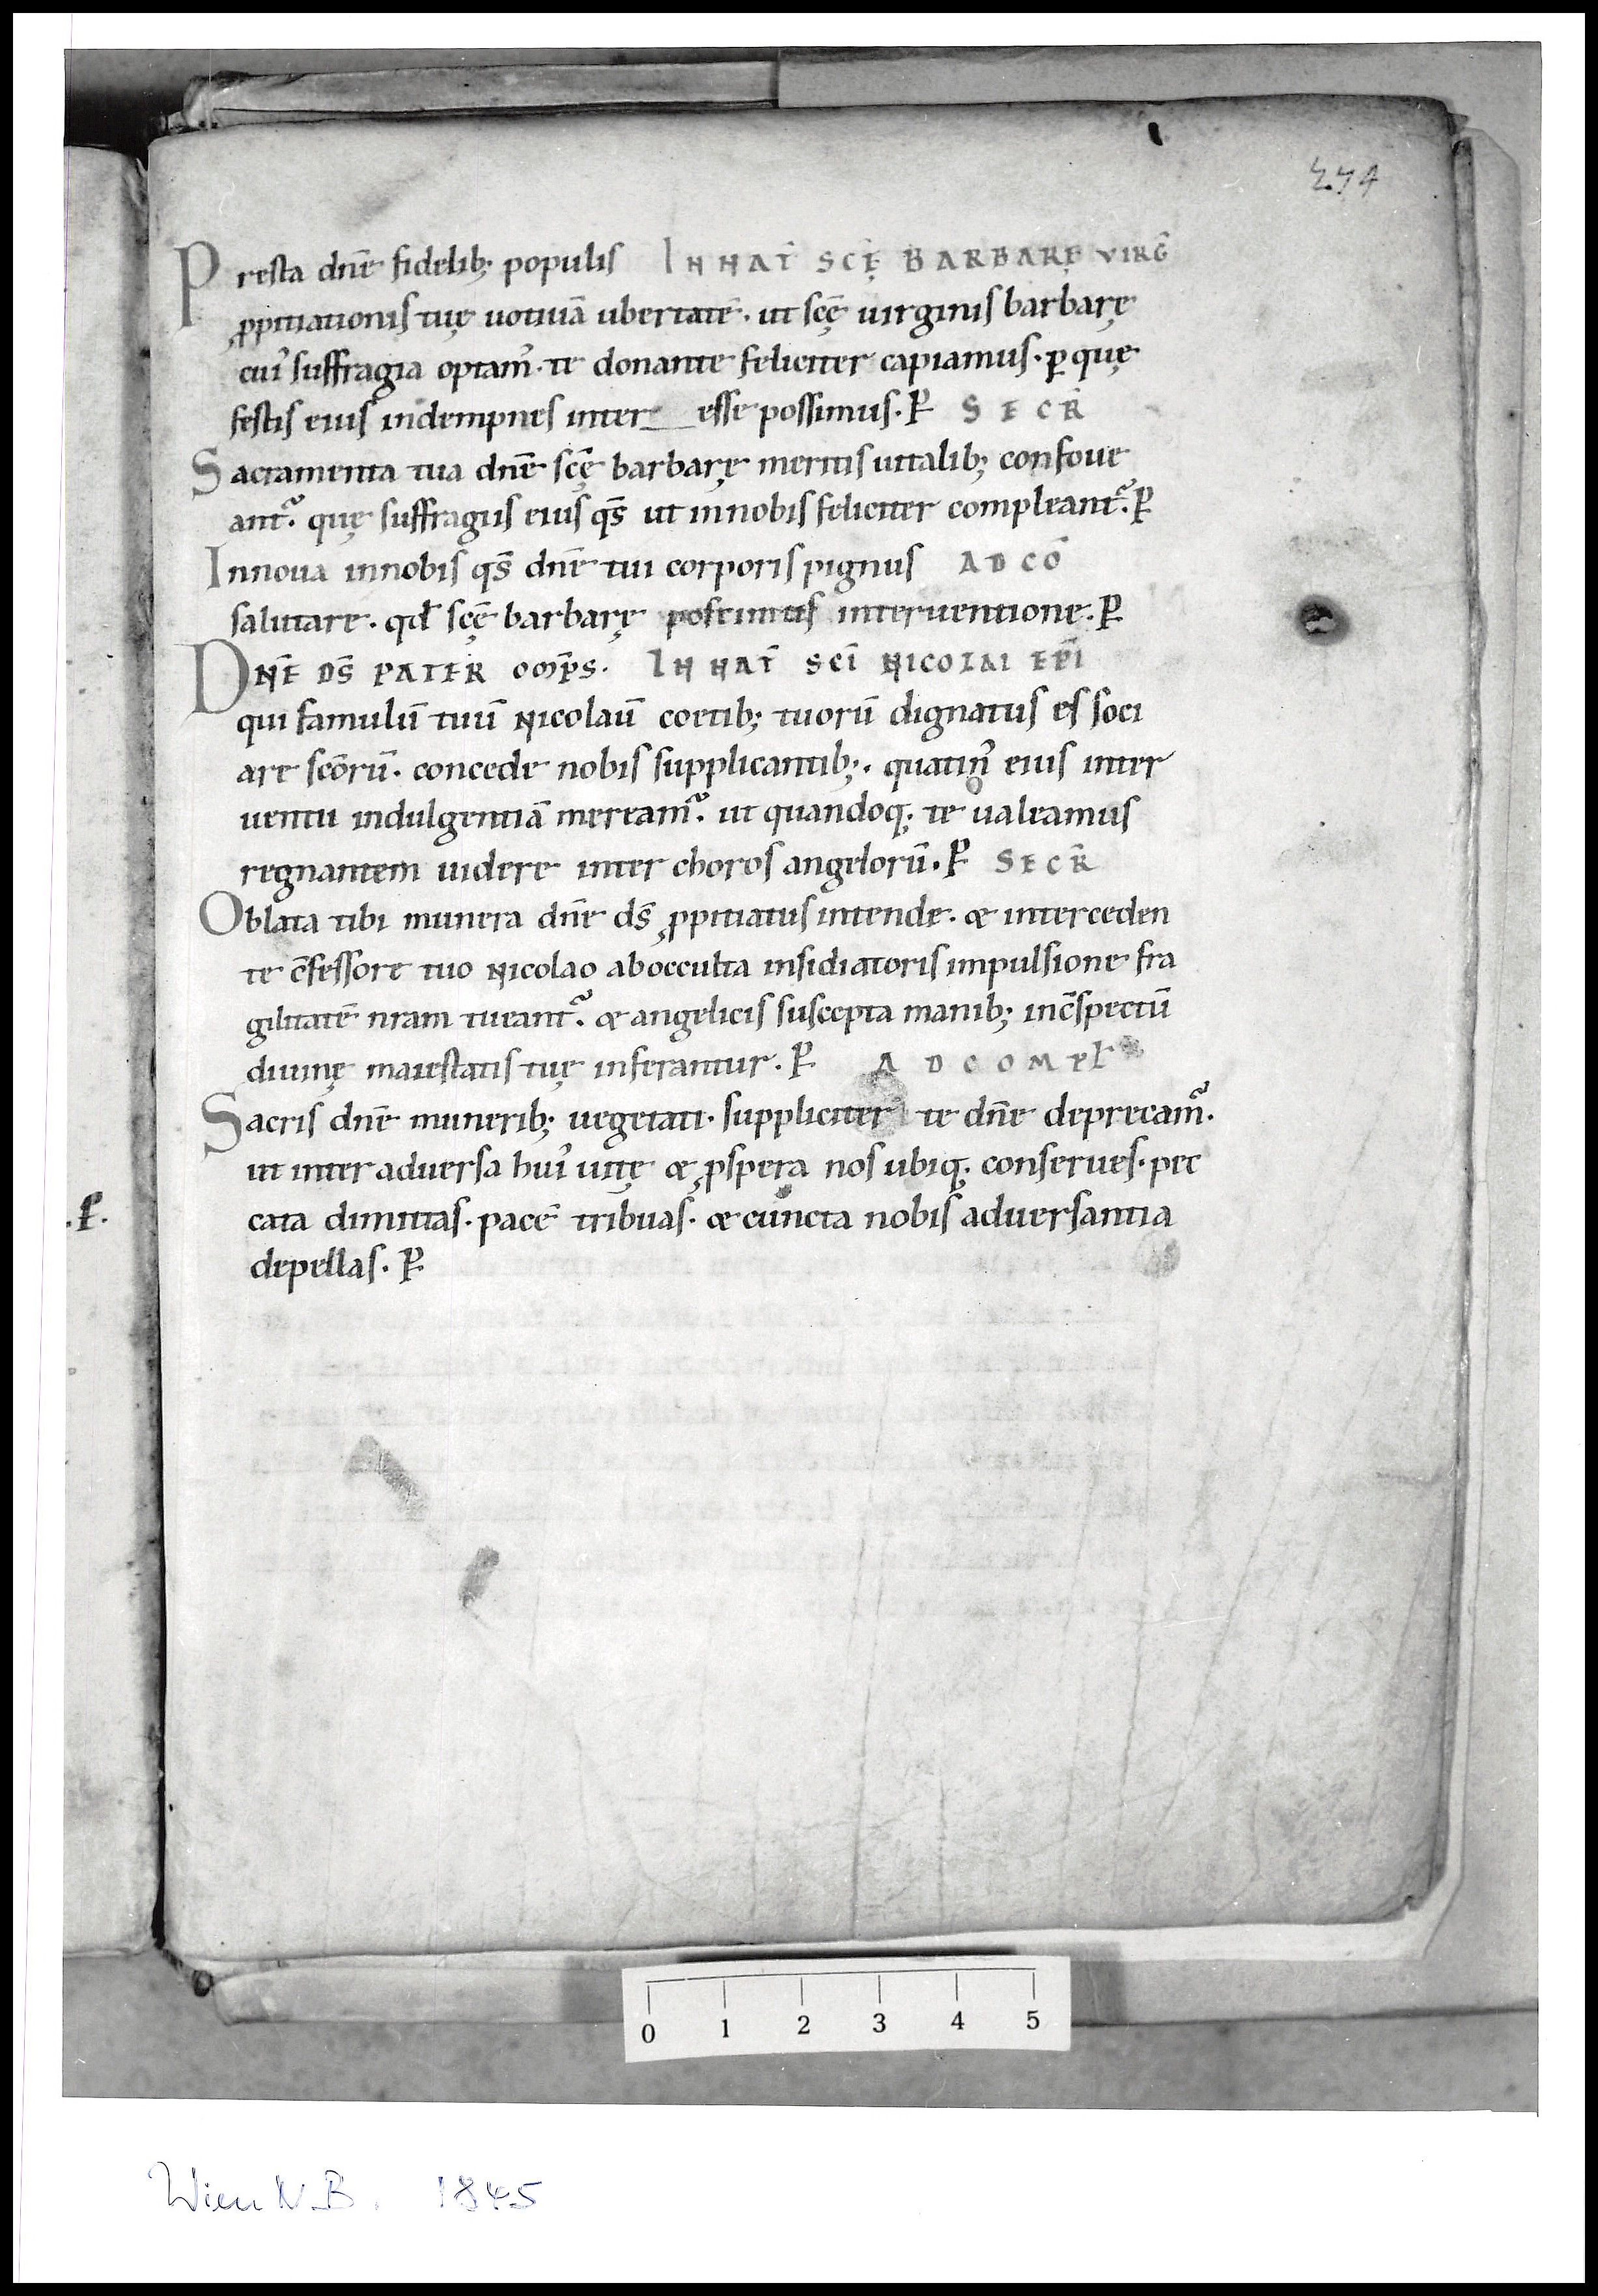 274
Presta dnē fidelib; populis IN NAT̄ SCĒ BARBARĘ VIRḠ
ꝓpitiationis tuę uotiuā ubertatē. ut scę̄ uirginis barbarę
cui᾽ suffragia optam᾽. te donante feliciter capiamus. ꝑ quę
festis eius indempnes inter esse possimus. P̄ SECR̄
Sacramenta tua dnē scę̄ barbarę meritis uitalib; confoue
ant᷑. quę suffragiis eius qs̄ ut in nobis feliciter compleant᷑. P̄
Innoua in nobis qs̄ dnē tui corporis pignus AD CŌ
salutare. qđ scę̄ barbarę poscimus interuentione. P̄
DNĒ DS̄ PATER OMP̄S. IN NAT̄ SCĪ NICOLAI EPĪ
qui famulū tuū Nicolaū cetib; tuorū dignatus es soci
are scōrū. concede nobis supplicantib;. quatin᾽ eius inter
uentu indulgentiā meream᷑. ut quandoq; te ualeamus
regnantem uidere inter choros angelorū. P̄ SECR̄
Oblata tibi munera dnē ds̄ ꝓpitiatus intende. & interceden
te c̄fessore tuo Nicolao ab occulta insidiatoris impulsione fra
gilitatē nram tueant᷑. & angelicis suscepta manib; in c̄spectū
diuinę maiestatis tuę inferantur. P̄ AD COMPL̄
Sacris dnē munerib; uegetati. suppliciter te dnē deprecam᷑.
ut inter aduersa hui᾽ uitę & ꝓspera nos ubiq; conserues. pec
cata dimittas. pacē tribuas. & cuncta nobis aduersantia
.P̄.
depellas. P̄
0 1 2 3 4 5
Wien N.B. 1845